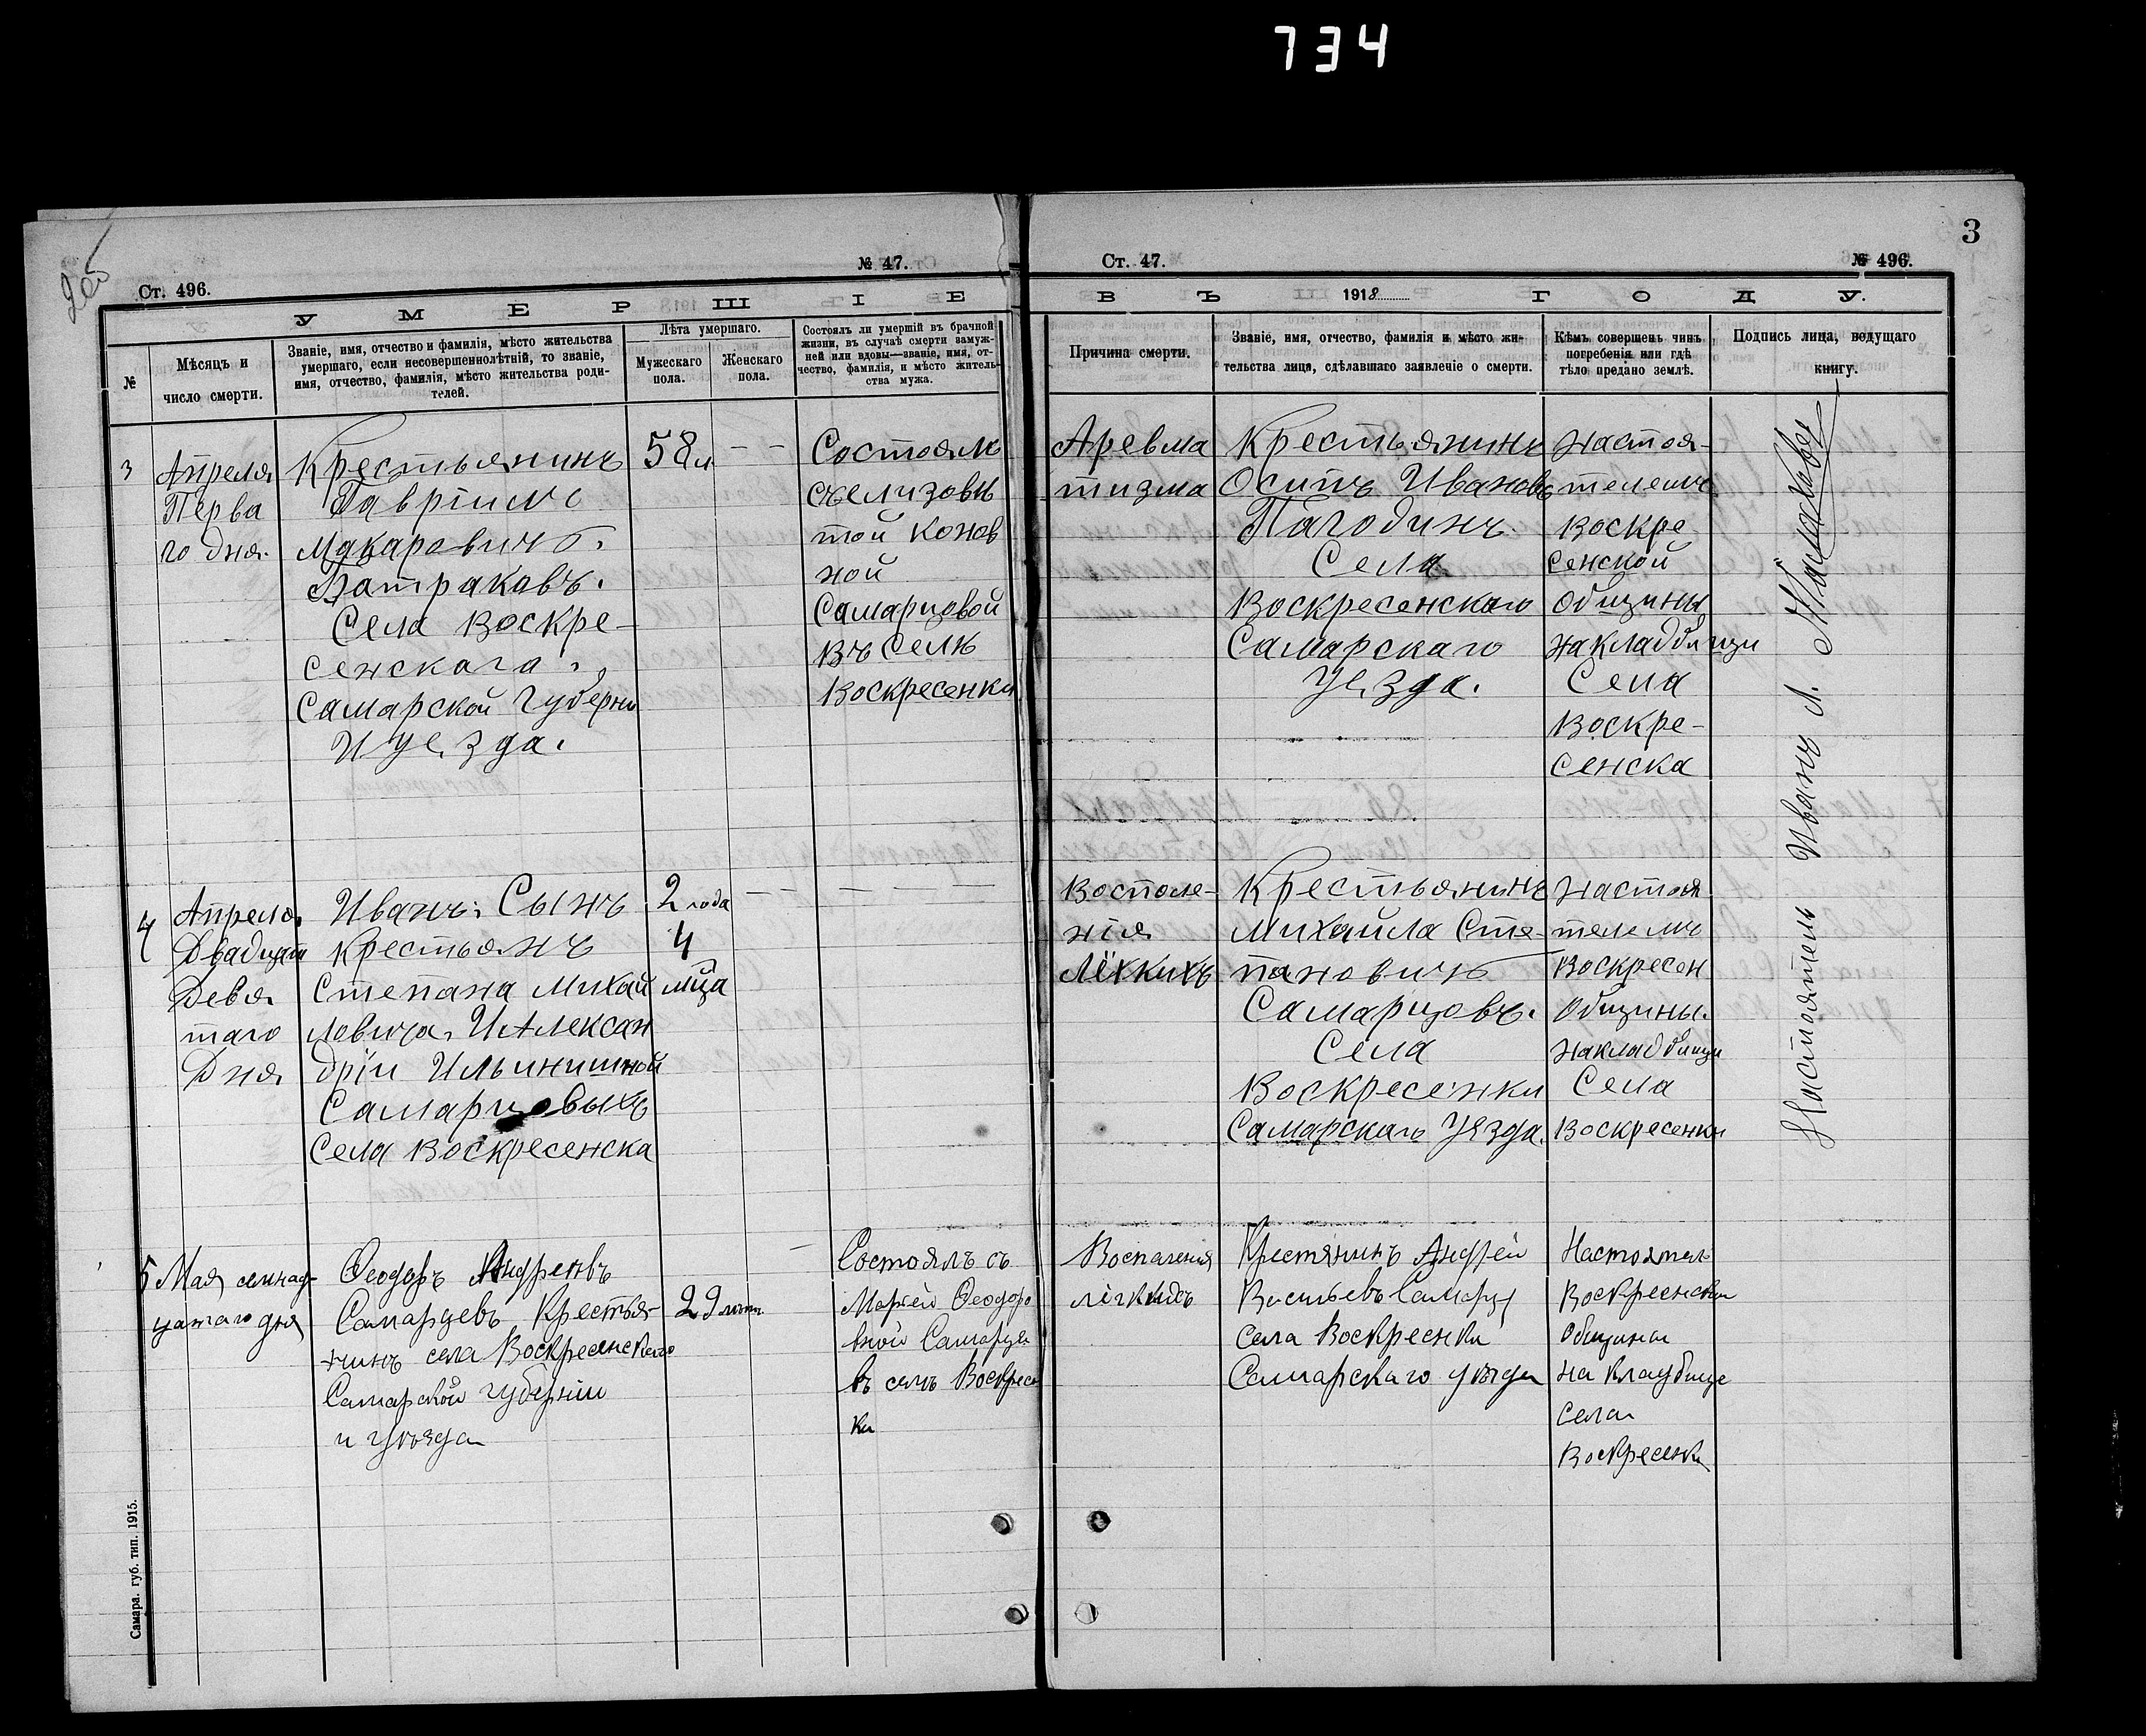 734
3
№ 47.
Ст. 496.
Ст. 47.
№ 496.
УМЕРШІЕ
ВЪ 1918 ГОДУ.
№
Мѣсяцъ и
число смерти.
Званіе, имя, отчество и фамилія, мѣсто жительства
умершаго, если несовершеннолѣтній, то званіе,
имя, отчество, фамилія, мѣсто жительства роди-
телей.
Лѣта умершаго.
Мужескаго
пола.
Женскаго
пола.
Состоялъ ли умершій въ брачной
жизни, въ случаѣ смерти замуж-
ней или вдовы—званіе, имя, от-
чество, фамилія, и мѣсто житель-
ства мужа.
Причина смерти.
Званіе, имя, отчество, фамилія и мѣсто жи-
тельства лица, сдѣлавшаго заявленіе о смерти.
Кѣмъ совершенъ чинъ
погребенія или гдѣ
тѣло предано землѣ.
Подпись лица, ведущаго
книгу.
3
Апреля
Перва
го дня.
Крестьянинъ
Гавріилъ
Макаровичъ.
Батраковъ.
Села Воскре-
сенскага.
Самарской Губерни
И уезда.
58 л
Состоялъ
той
ной
Самарцовой
въ Селѣ
Воскресенки
Аревма
тизма
Крестьянинъ
Осипъ Ивановъ
Пагодинъ.
Села
Воскресенскаго
Самарскаго
Уезда.
Настоя-
телемъ
Воскре
сенской
Общины
на кладбищи
Села
Воскре-
сенска
4
Апреля.
Двадцат
Девя
таго
Дня
Иванъ: Сынъ
крестьянъ
Степана Михай
ловича, И Алексан
дріи Ильинишной
Самарцовыхъ
Села Воскресенска
2 года
4
мца
Воспале-
нія
Лёхкихъ
Крестьянинъ
Михайла Сте-
пановичъ
Самарцовъ.
Села
Воскресенки
Самарскаго Уѣзда.
Настоя
телемъ
Воскресен
Общины.
на кладбищи
Села
Воскресенки
5
Мая семнад-
цатаго дня
Ѳеодоръ Андреевъ
Самарцевъ Крестья-
нинъ села Воскресенскаго
Самарской губерніи
и уѣзда
29 лѣтъ
Состоялъ съ
Маріей Ѳеодоро
вной Самарце
въ селѣ Воскресен
ки
Воспаления
лёгкихъ
Крестянинъ Андрей
Васильевъ Самарц
села Воскресенки
Самарскаго уѣзда
Настоятель
Воскресенски
Общины
на кладбище
села
Воскресенки
Настоятель Иванъ Л.
Самара. губ. тип. 1915.